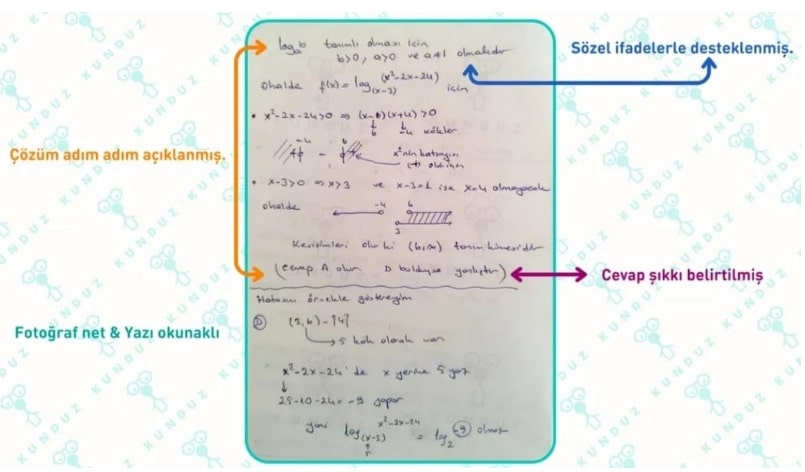 log_a b tanımlı olması için
b>0, a>0 ve a≠1 olmalıdır
Sözel ifadelerle desteklenmiş.
Ohalde f(x)=log_(x-3) (x²-2x-24) için
• x²-2x-24>0 ⇒ (x-6)(x+4)>0
6 -4 kökler
Çözüm adım adım açıklanmış.
-4 6
+ - +
x² nin katsayısı
(+) olduğundan
• x-3>0 ⇒ x>3 ve x-3=1 ise x=4 olmayacak
Ohalde
-4 6
3
Kesişimleri olur ki (6,∞) tanım kümesidir
(Cevap A olur. D bulduysa yanlıştır)
Cevap şıkkı belirtilmiş
Hatasını örnekle göstereyim
Fotoğraf net & Yazı okunaklı
D (3,6)-{4}
5 kök olarak var
x²-2x-24 de x yerine 5 yaz
25-10-24=-9 yapar
yani log_(x-3) x²-2x-24 = log_2 -9 olmaz
5
KUNDUZ